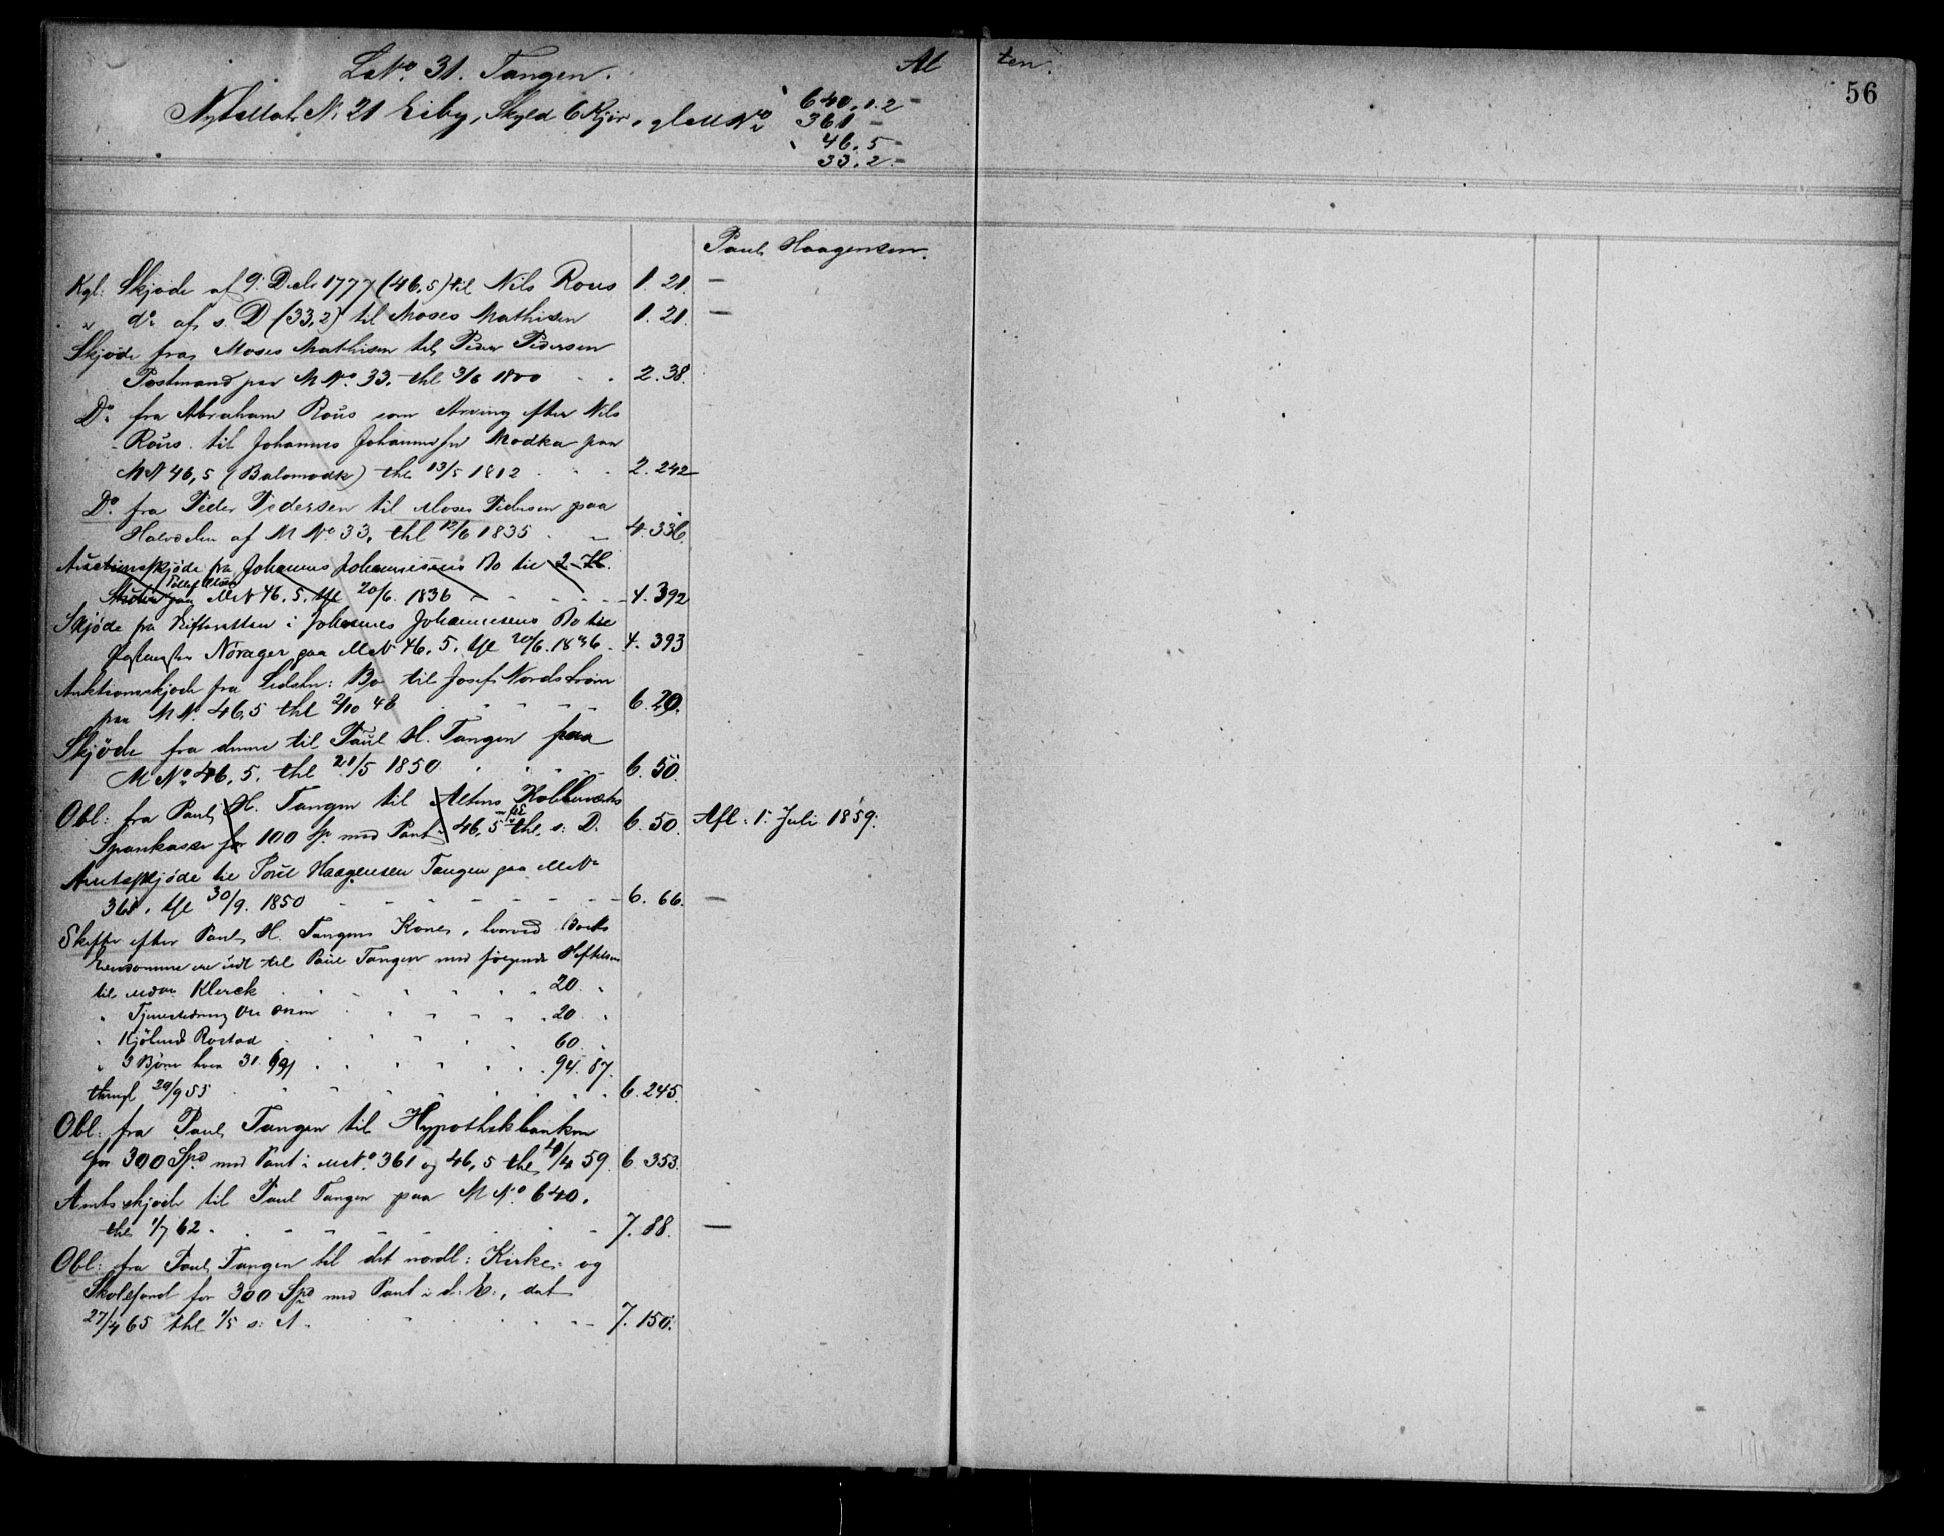 L No. 31. Tangen.
Al ten.
56
Ny Matr. N: 21 Eiby, Skyld 6 Kjør, gl. M No 640, 1.2 -
361 -
46. 5 -
33. 2 -
Paul Haagensen.
Kgl: Skjøde af 9: Decbr 1777 (46,5) til Nils Rous 1. 21. —
" do af s. D (33,2) til Moses Mathisen 1. 21. —
Skjøde fra Moses Mathisen til Peder Pedersen
Postmand paa M No. 33. thl 3/6 1800 2. 38.
Do fra Abraham Rous som Arving efter Nils
Rous til Johannes Johannessen Modka paa
M N 46,5 (Balomodk) thl 13/5 1812 2. 242
Do. fra Peder Pedersen til Moses Pedersen paa
Halvdelen af M No 33. thl 12/6 1835 4. 336.
Auctionsskjøde fra Johannes Johannesens Bo til 2
Tollef Olsen
paa M N 46. 5. thl 20/6. 1836 4. 392
Skjøde fra Skifteretten i Johannes Johannesens Bo til
Nørager paa M N 46. 5. thl 20/6. 1836. 4. 393
Auktionsskjøde fra Bo til Josef Nordstrøm
paa M No. 46,5 thl 2/10 48 6. 20.
Skjøde fra denne til Paul H. Tangen paa
M No 46. 5. thl 21/5 1850. 6. 50.
Obl: fra Paul H. Tangen til Altens Kobberværks
Sparekasse for 100 Sp med Pant i 46, 5 thl s: D. 6. 50. Afl: 1: Juli 1859.
Amtsskjøde til Poul Haagensen Tangen paa M No
361. thl 30/9. 1850 6. 66. —
Skifte efter Paul H. Tangens Kone, hvorved Boets
Eiendomme ere udl til Paul Tangen med følgende Heftelser
til Klerck 20.
" Ole Olsen 20.
" Kjølmd Rostad 60.
" 3 Børn hver 31. 94. 87.
thingl 29/9 55 6. 245.
Obl: fra Paul Tangen til Hypothekbanken
for 300 Spd med Pant i M No 361 og 46, 5 thl 59. 6. 353.
Amtsskjøde til Paul Tangen paa M No. 640.
thl 1/7 62. 7. 88. —
Obl: fra Paul Tangen til det nordl: Kirke- og
Skolefond for 300 Spd med Pant i d: E:, dat
27/4 65 thl 1/5 s: A. 7. 150.